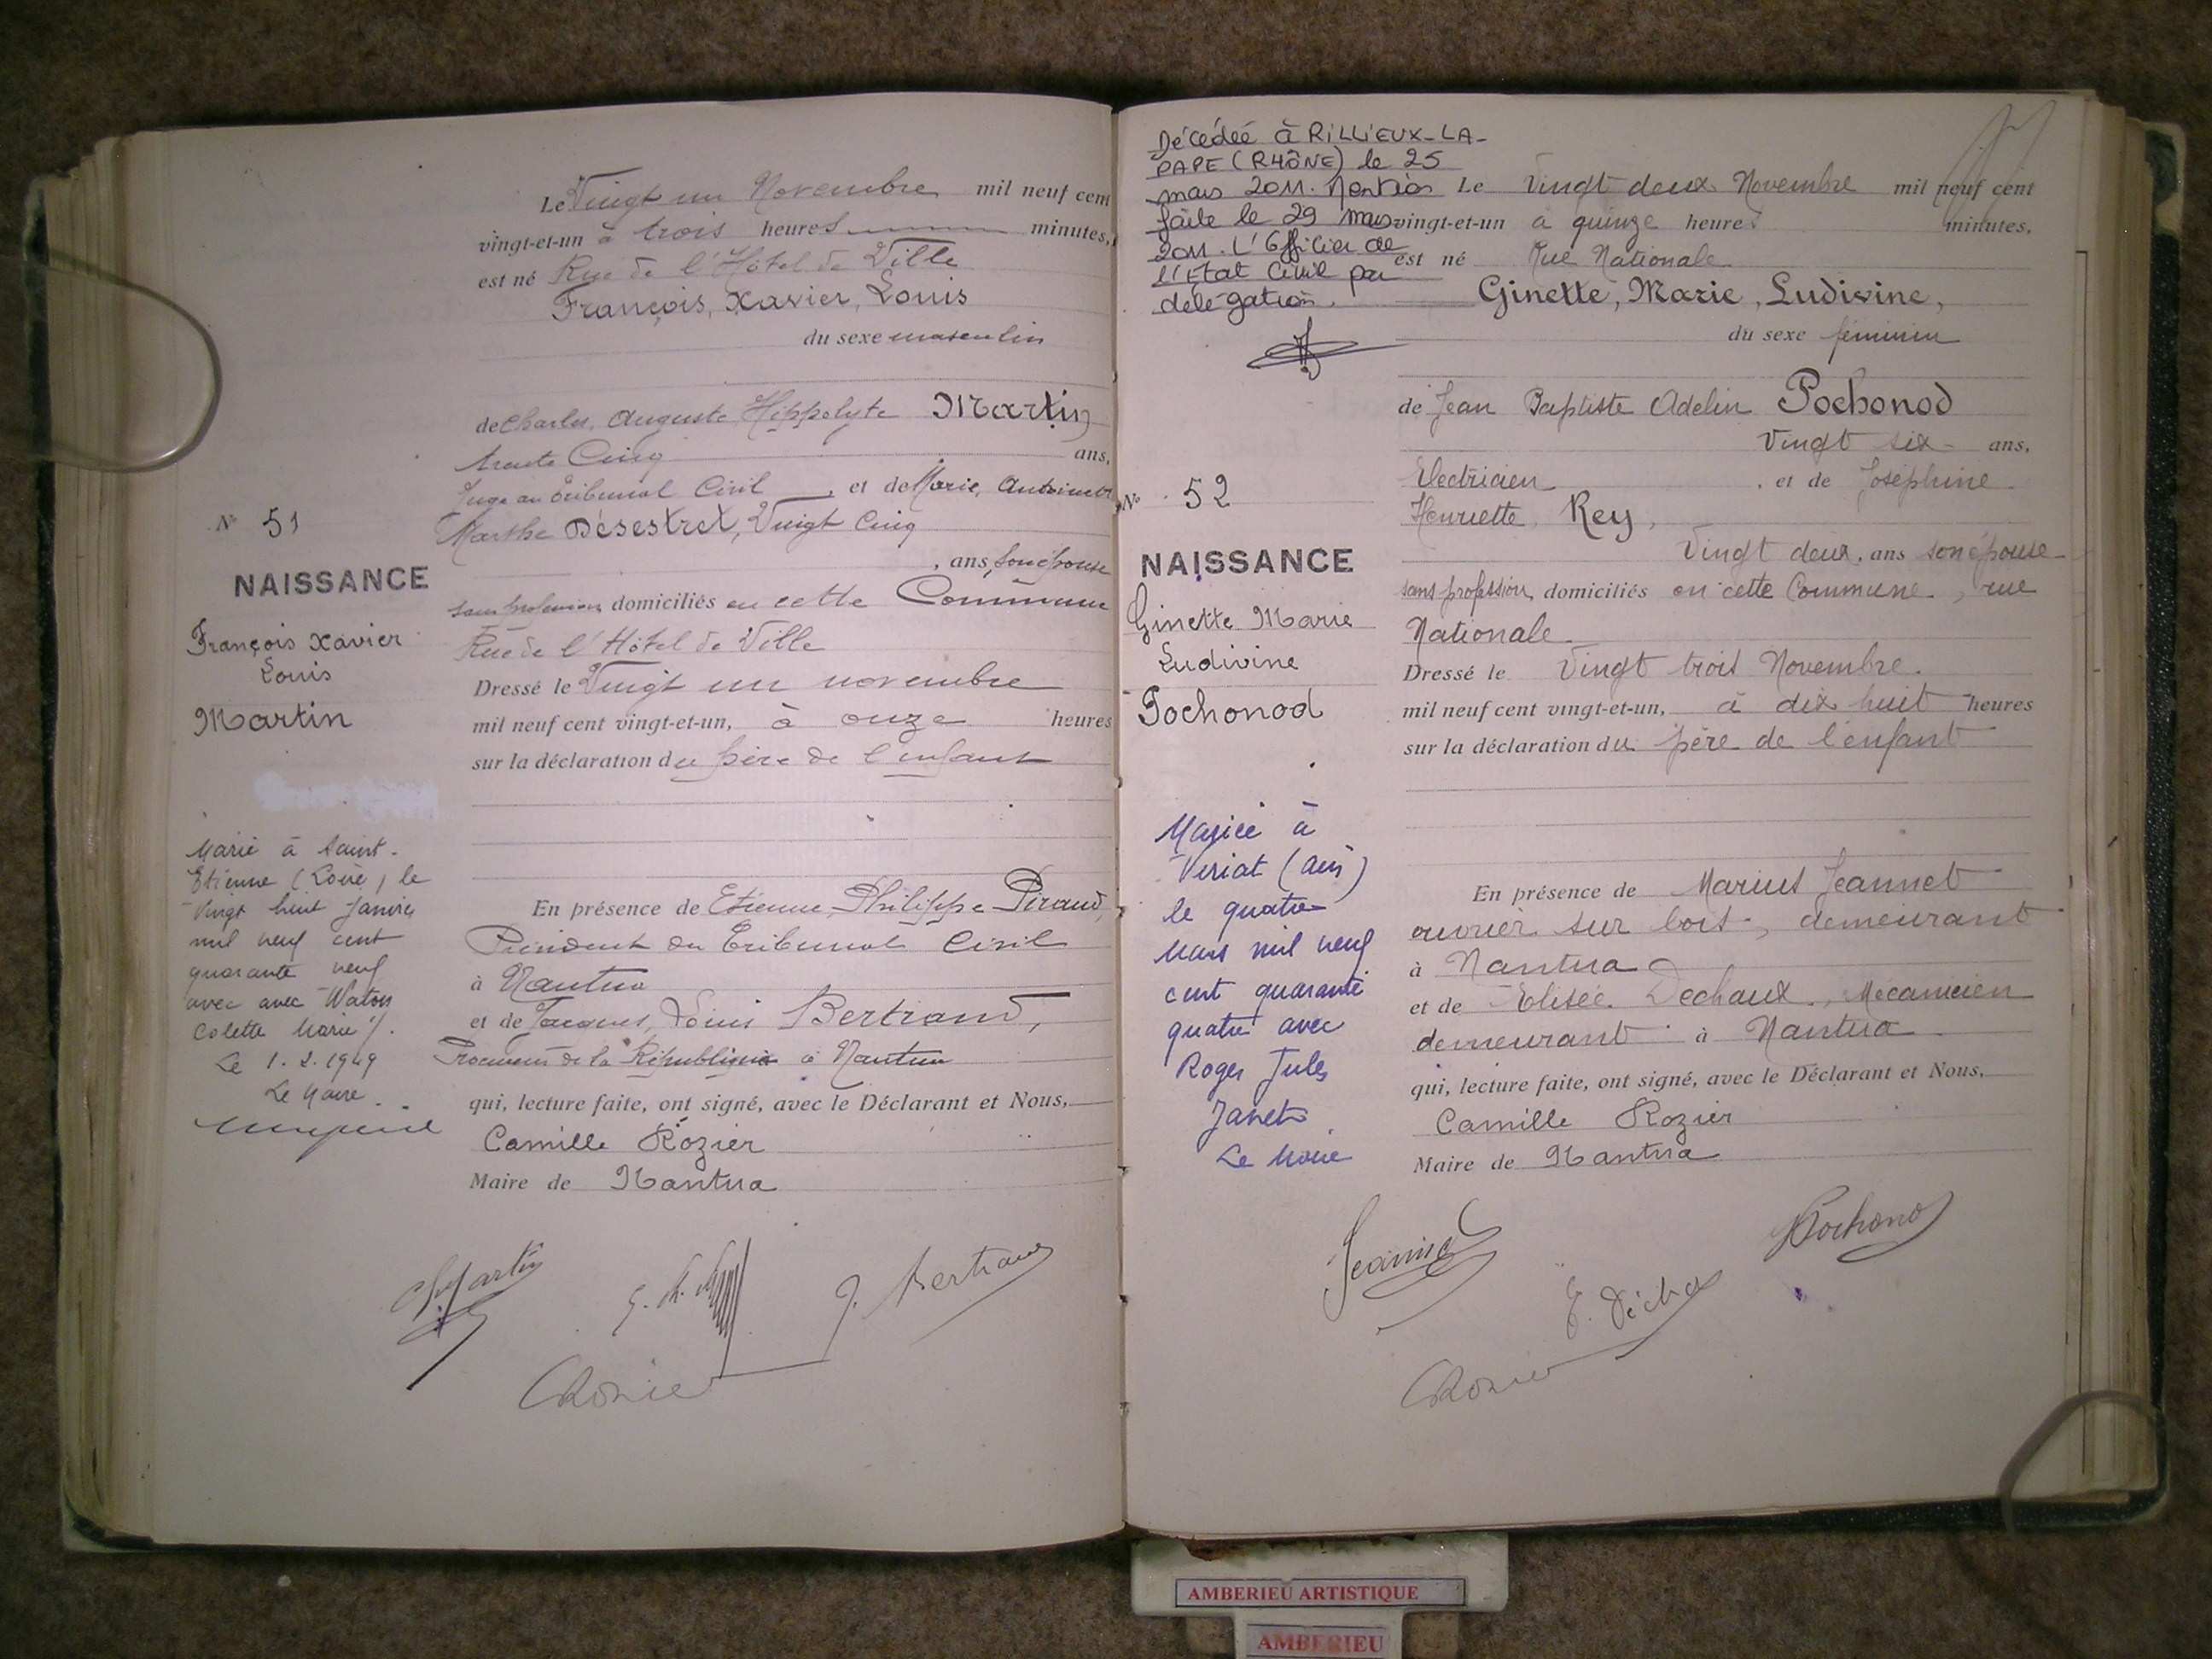 Le Vingt un Novembre mil neuf cent
vingt-et-un à trois heures minutes,
est né Rue de l'Hôtel de Ville
François, Xavier, Louis
du sexe masculin
de Charles, Auguste, Hippolyte Martin
trente Cinq ans,
Juge au Tribunal Civil, et de Marie, Antoinette
Marthe Désestret, Vingt Cinq
, ans, son épouse
sans profession domiciliés en cette Commune
Rue de l'Hôtel de Ville
Dressé le Vingt un novembre
mil neuf cent vingt-et-un, à onze heures
sur la déclaration du père de l'enfant
En présence de Etienne, Philippe Piraud,
Président du Tribunal Civil
à Nantua
et de Jacques, Louis Bertrand,
Procureur de la République à Nantua
qui, lecture faite, ont signé, avec le Déclarant et Nous,
Camille Rozier
Maire de Nantua
N° 51
NAISSANCE
François Xavier
Louis
Martin
Marié à Saint-
Etienne (Loire) le
Vingt huit Janvier
mil neuf cent
quarante neuf
avec avec Waton
Colette Marie ./.
Le 1. 2. 1949
Le Maire
J. Bertrand
CRozier
Décédée à RILLIEUX-LA-
PAPE (RHÔNE) le 25
mars 2011. Mention
faite le 29 mars
2011. L'Officier de
l'Etat Civil par
délégation.
N° 52
NAISSANCE
Ginette Marie
Ludivine
Pochonod
Mariée à
Veriat (Ain)
le quatre
Mars mil neuf
cent quarante
quatre avec
Roger Jules
Janet
Le Maire
Le Vingt deux Novembre mil neuf cent
vingt-et-un à quinze heures minutes,
est né Rue Nationale
Ginette, Marie, Ludivine,
du sexe féminin
de Jean Baptiste Adelin Pochonod
Vingt six ans,
Electricien, et de Joséphine
Henriette Rey,
Vingt deux, ans son épouse
sans profession, domiciliés en cette Commune, rue
Nationale
Dressé le Vingt trois Novembre.
mil neuf cent vingt-et-un, à dix huit heures
sur la déclaration du père de l'enfant
En présence de Marius Jeannet
ouvrier sur bois, demeurant
à Nantua
et de Elisée Dechaux, Mécanicien
demeurant à Nantua
qui, lecture faite, ont signé, avec le Déclarant et Nous,
Camille Rozier
Maire de Nantua
Pochonod
CRozier
AMBERIEU ARTISTIQUE
AMBERIEU